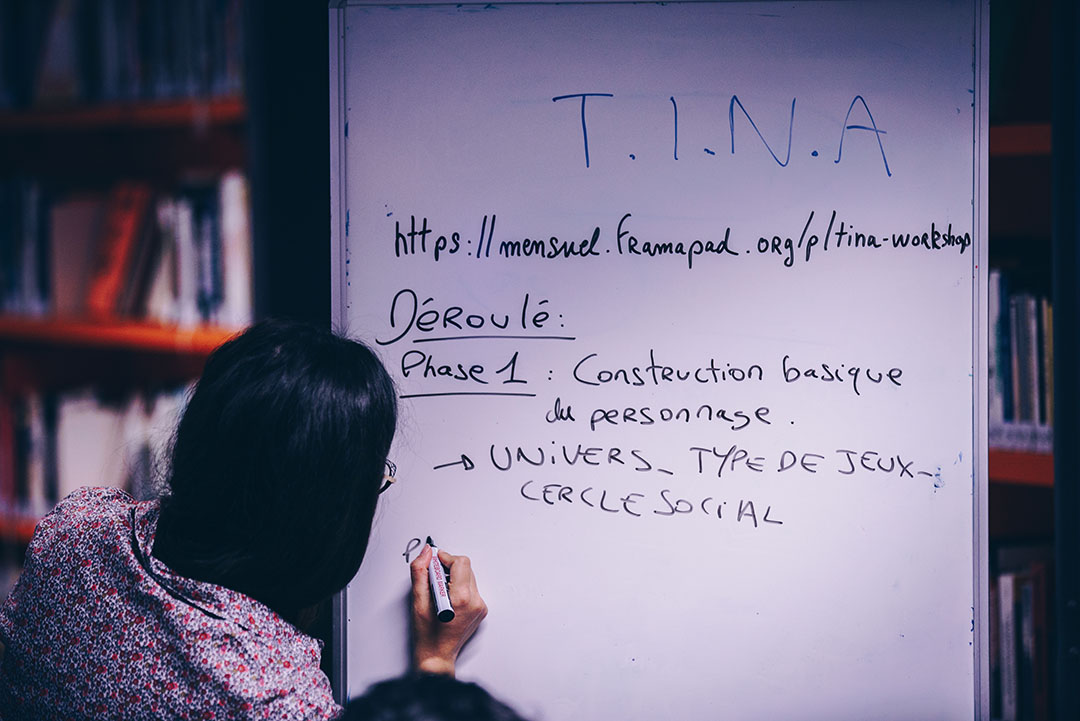 T.I.N.A
https://mensuel.framapad.org/p/tina-workshop
Déroulé:
Phase 1 : Construction basique
du personnage.
→ UNIVERS - TYPE DE JEUX -
CERCLE SOCIAL
P